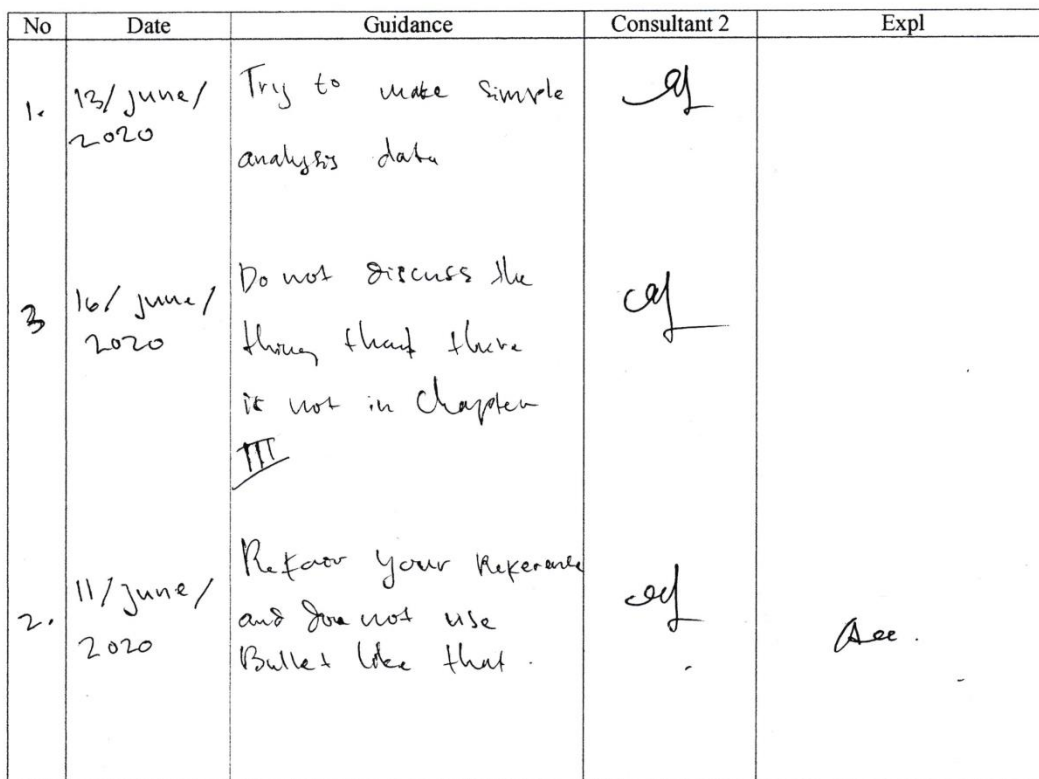 No Date Guidance Consultant 2 Expl
1. 13/June/ 2020
Try to make simple
analysis data
3 16/June/ 2020
Do not discuss the
thing that there
is not in Chapter
III
2. 11/June/ 2020
your Reference
and not use
Bullet like that.
Acc.